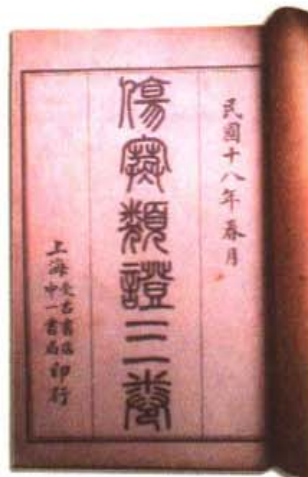 民國十八年春月
傷寒類證三卷
上海受古書店
中一書局印行